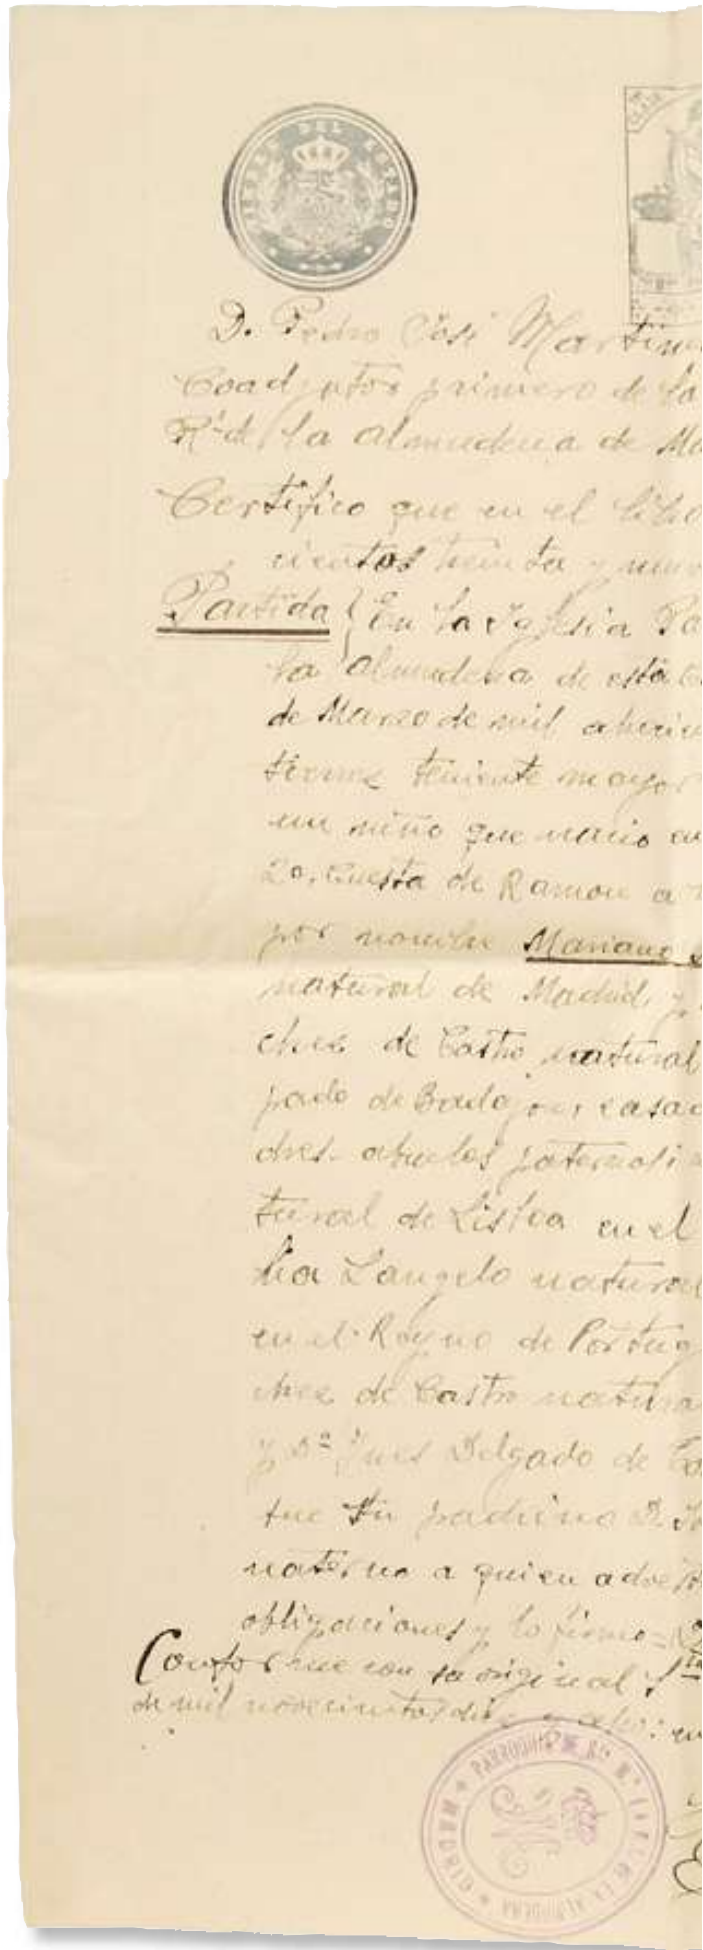 TIMBRE DEL ESTADO
CLASE
D. Pedro José Martin
Coadjutor primero de la
Rl. de la Almudena de Ma
Certifico que en el libro
cientos treinta y nuev
Partida } En la Yglesia Pa
la Almudena de esta C
de Marzo de mil ochocien
teniente mayor
un niño que nacio en
20, Cuesta de Ramon a
por nombre Mariano
natural de Madrid, y
chez de Castro natural
pado de Badajoz, casad
dres. abuelos paternos
tural de Lisboa en el
natural
en el Reyno de Portug
chez de Castro natura
y Da. Ynes Delgado de
fue su padrino D. Jo
materno a quien adver
obligaciones y lo firmo =
Conforme con su original
de mil novecientos diez y ocho: en
PARROQUIA DE Sta. Ma. LA RL. DE LA ALMUDENA
MADRID